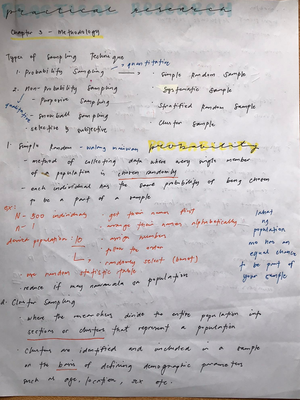 practical research
Chapter 3 - Methodology
Types of Sampling Technique
quantitative
1. Probability Sampling
· Simple Random Sample
2. Non-Probability Sampling
· Systematic Sample
· Purposive Sampling
· Stratified Random Sample
· Snowball Sampling
· Cluster Sample
· selective & subjective
probability
1. Simple Random -
- method of collecting data where every single member
of a population is chosen randomly
- each individual has the same probability of being chosen
to be a part of a sample
ex:
N = 500 individuals
- get their names first
- arrange their names alphabetically
population: 10
- assign numbers
- follow the order
- randomly select
use random statistic table
- reduce if may
sa population
lahat
ng
population
ay
equal chance
to be part of
your sample
2. Cluster Sampling
- where the researchers divide the entire population into
sections or clusters that represent a population
- clusters are identified and included in a sample
on the basis of defining demographic parameters
such as age, location, sex etc.